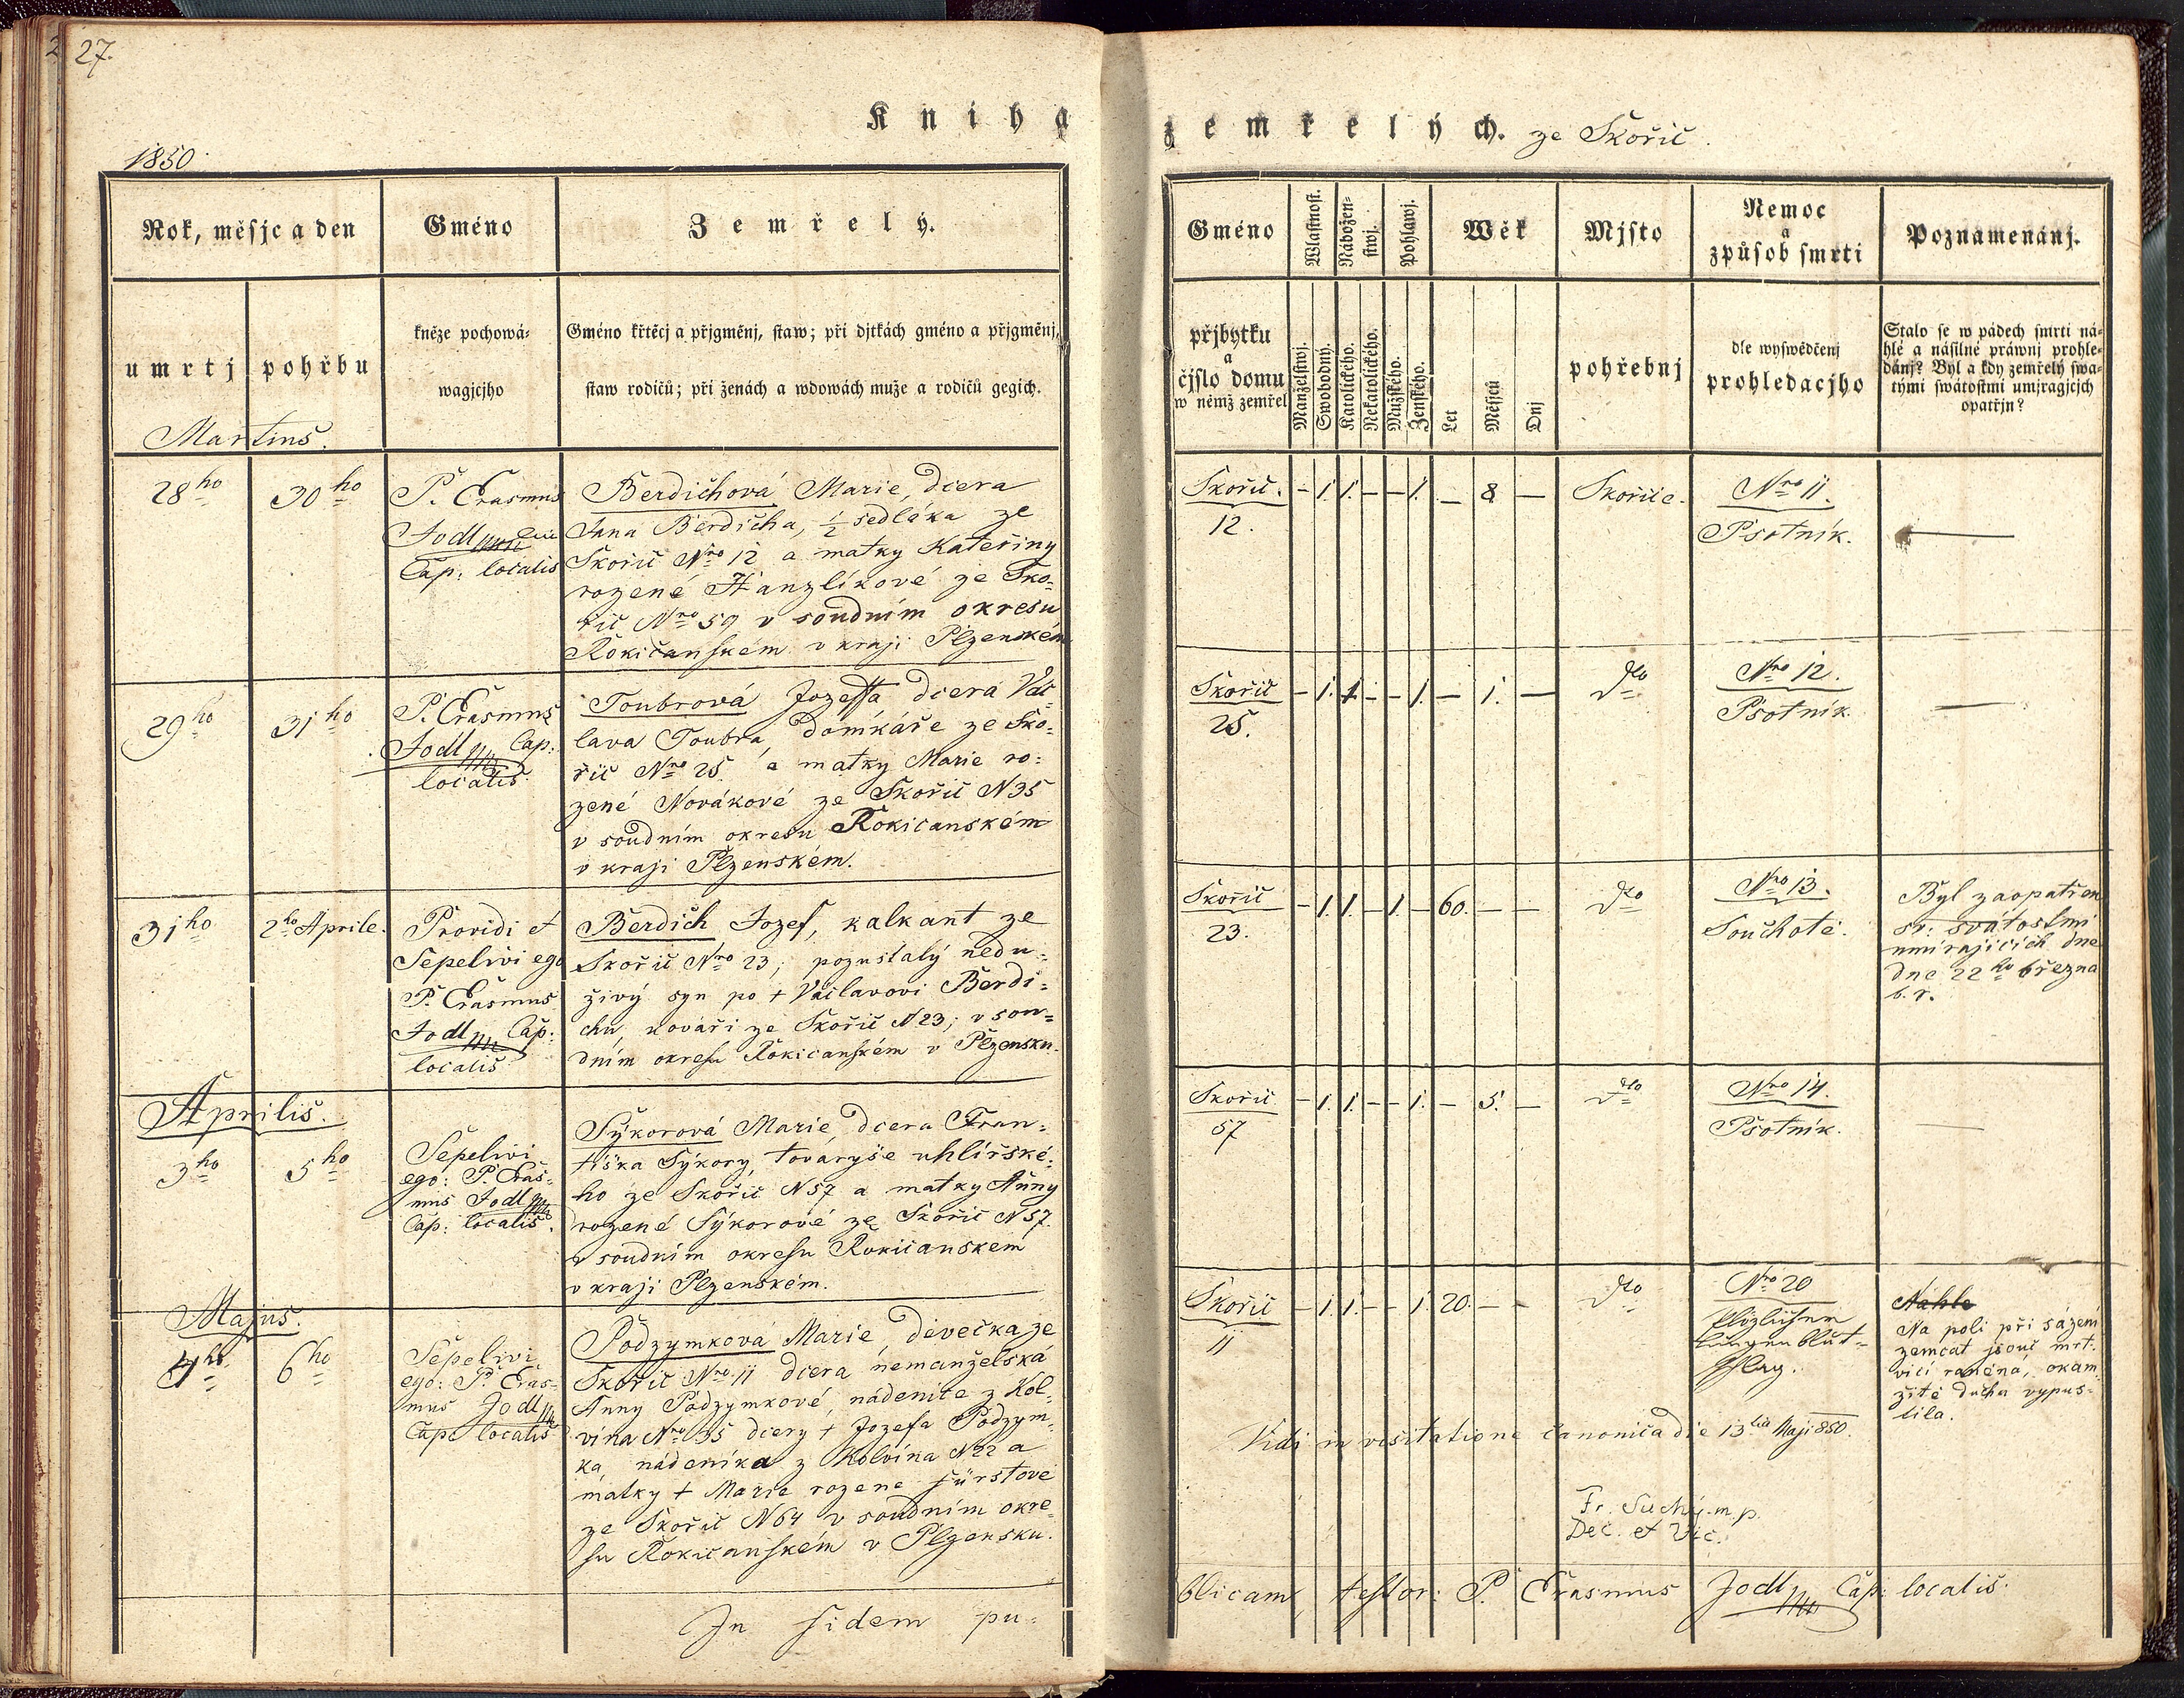 27.
Kniha
1850.
Rok, měsjc a den
Gméno
Zemřelý.
umrtj
pohřbu
kněze pochowá-
wagjcjho
Gméno křtěcj a přjgměnj, staw; při djtkách gméno a přjgměnj,
staw rodičů; při ženách a wdowách muže a rodičů gegich.
Martius.
28ho
30ho
P. Erasmus
Jodl
Cap: localis
Berdichová Marie, dcera
Jana Berdicha, 1/2 sedláka ze
Skořic Nro 12 a matky Kateřiny
rozené Hanzlíkové ze Sko-
řic Nro 59 v soudním okresu
Rokičanském v kraji Plzenském
29ho
31ho
P. Erasmus
Jodl Cap:
localis.
Toubrová Jozeffa, dcera Vác
lava Toubra, domkáře ze Sko-
řic Nro 25. a matky Marie ro-
zené Novákové ze Skořic N 35
v soudním okresu Rokicanském
v kraji Plzenském.
31ho
2ho Aprile.
Providi et
Sepelivi ego
P. Erasmus
Jodl Cap:
localis
Berdich Jozef, kalkant ze
Skořic Nro 23; pozustalý nedu-
živý syn po + Václavovi Berdi-
chu, kováři ze Skořic N 23; v sou-
dním okresu Rokicanském v Plzensku.
Aprilis.
3ho
5ho
Sepelivi
ego: P. Eras-
mus Jodl
Cap: localis.
Sýkorová Marie, dcera Fran-
tiška Sýkory, tovaryše uhlířské-
ho ze Skořic N 57 a matky Anny
rozené Sýkorové ze Skořic N 57.
v soudním okresu Rokicanském
v kraji Plzenském.
Majus.
4ho
6ho
Sepelivi
ego: P. Eras-
mus Jodl
Cap: localis
Podzymková Marie, děvečka ze
Skořic Nro 11 dcera nemanželská
Anny Podzymkové, nádenice z Kol-
vína Nro 35 dcery + Jozefa Podzym-
ka, nádeníka z Kolvína N 22 a
matky + Marie rozené Fürstové
ze Skořic N 64 v soudním okre-
su Rokicanském v Plzensku.
In fidem pu-
zemřelých. ze Skořic.
Gméno
Wlastnost.
Nábožen-
stwj.
Pohlawj.
Wěk
Mjsto
Nemoc
a
způsob smrti
Poznamenánj.
přjbytku
a
čjslo domu
w němž zemřel
Manželstwj.
Swobodný.
Katolického.
Nekatolického.
Mužského.
Ženského.
Let
Měsjců
Dnj
pohřebnj
dle wyswědčenj
prohledacjho
Stalo se w pádech smrti ná-
hlé a násilné práwnj prohle-
dánj? Byl a kdy zemřelý swa-
tými swátostmi umjragjcjch
opatřjn?
Skořic.
12.
– 1. 1. – – 1. – 8 –
Skořice.
Nro 11.
Psotník.
Skořic
25.
– 1. 1 – – 1. – 1. –
dto
Nro 12.
Psotník.
Skořic
23.
– 1. 1. – 1. – 60. – –
dto
Nro 13.
Souchotě.
Byl zaopatřen
sv: svátostmi
umírajících dne
dne 22ho března
b. r.
Skořic
57
– 1. 1. – – 1. – 5. –
dto
Nro 14.
Psotník.
Skořic
11
– 1. 1. – – 1 20. – –
dto
Nro 20
Plözlicher
Lungenblut-
schlag.
Náhle
Na poli při sázení
zemčat jsouc mrt-
vicí raněná, okam-
žitě ducha vypus-
tila.
Vidi in visitatione canonica die 13tia Maji 850.
Fr. Suchý m.p.
Dec. et Vic.
blicam, testor: P. Erasmus Jodl Cap: localis.